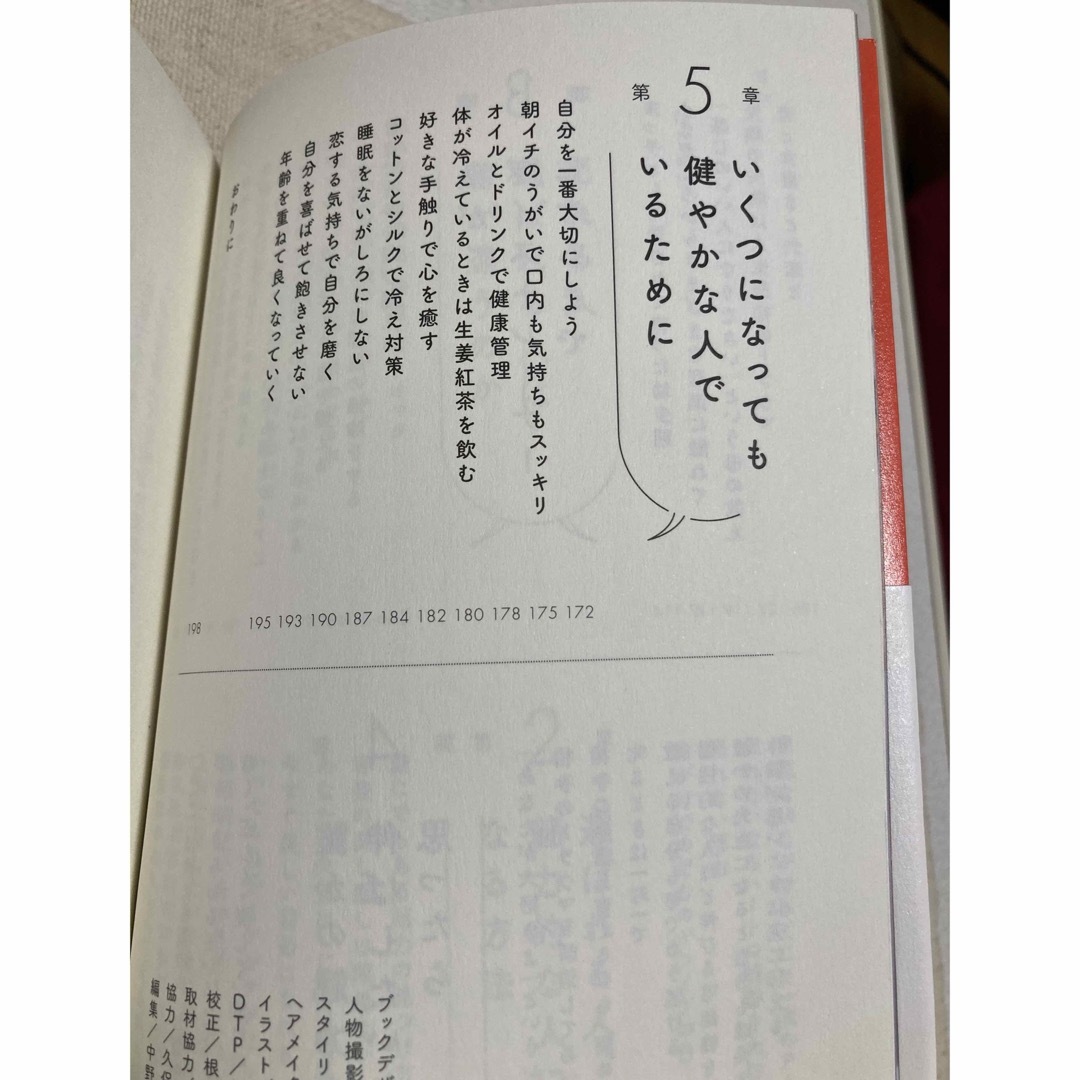 第5章
いくつになっても
健やかな人で
いるために
自分を一番大切にしよう
朝イチのうがいで口内も気持ちもスッキリ
オイルとドリンクで健康管理
体が冷えているときは生姜紅茶を飲む
好きな手触りで心を癒す
コットンとシルクで冷え対策
睡眠をないがしろにしない
恋する気持ちで自分を磨く
自分を喜ばせて飽きさせない
年齢を重ねて良くなっていく
おわりに
198 195 193 190 187 184 182 180 178 175 172
ブックデザ
人物撮影
スタイリ
ヘアメイク
イラスト
DTP/
校正/根
取材協力/
協力/久保
編集/中野